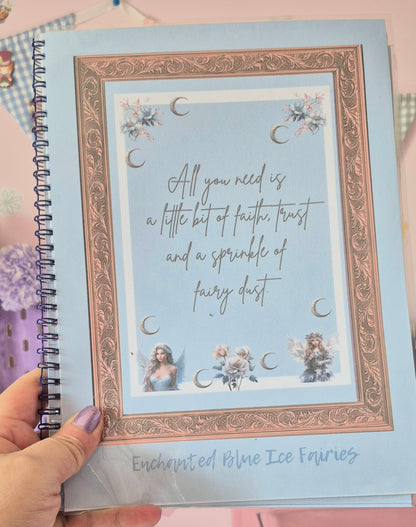 All you need is
a little bit of faith, trust
and a sprinkle of
fairy dust.
Enchanted Blue Ice Fairies